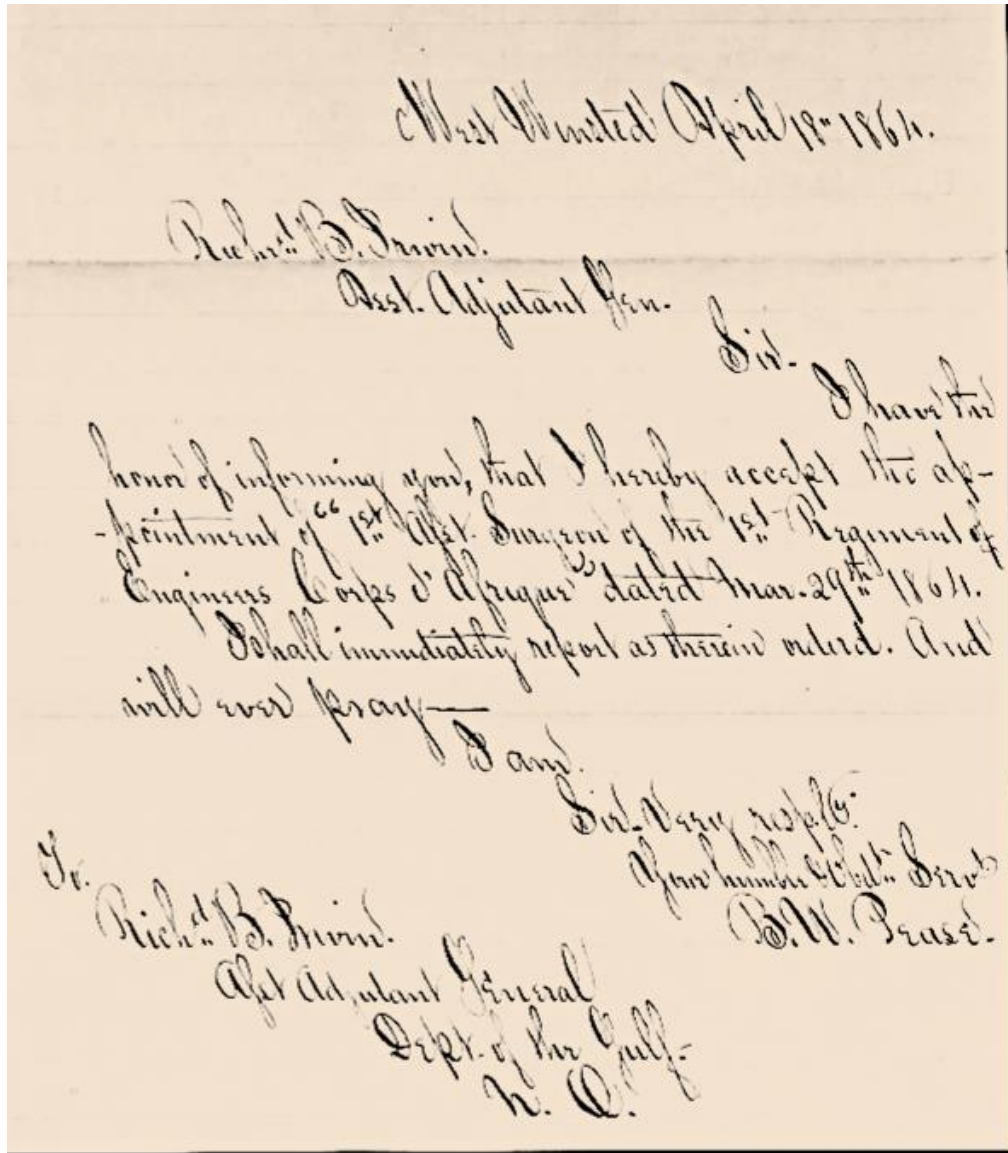 West Winsted April 18" 1864.
Richd. B. Irwin.
Asst. Adjutant Gen.
Sir-
I have the
honor of informing you, that I hereby accept the ap-
-pointment of "1st Asst. Surgeon of the 1st Regiment of
Engineers Corps d'Afrique" dated Mar. 29th 1864.
I shall immediately report as therein orderd. And
will ever pray—
I am.
Sir- Very resp.fly.
Your humble Obdt. Servt
B. W. Pease.
To.
Richd. B. Irwin.
Asst Adjutant General
Dept. of the Gulf-
N. O.